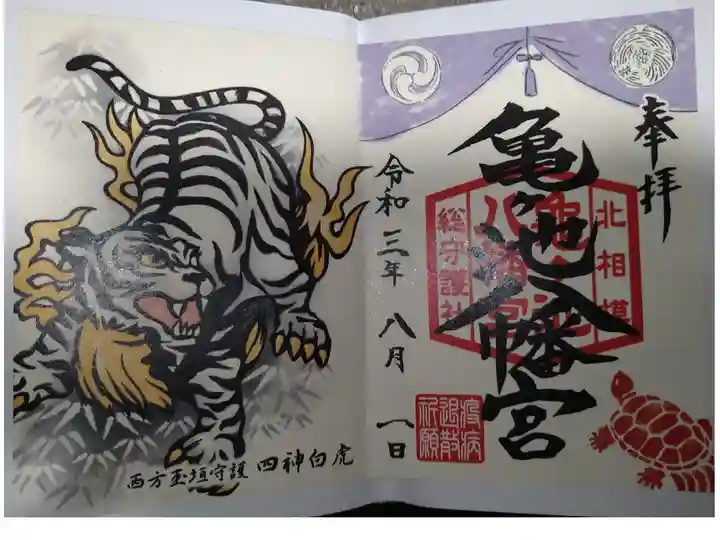 奉拝
亀ヶ池八幡宮
北相模
亀ヶ池
八幡宮
総守護社
令和三年 八月 一日
疫病
退散
祈願
西方玉垣守護 四神白虎